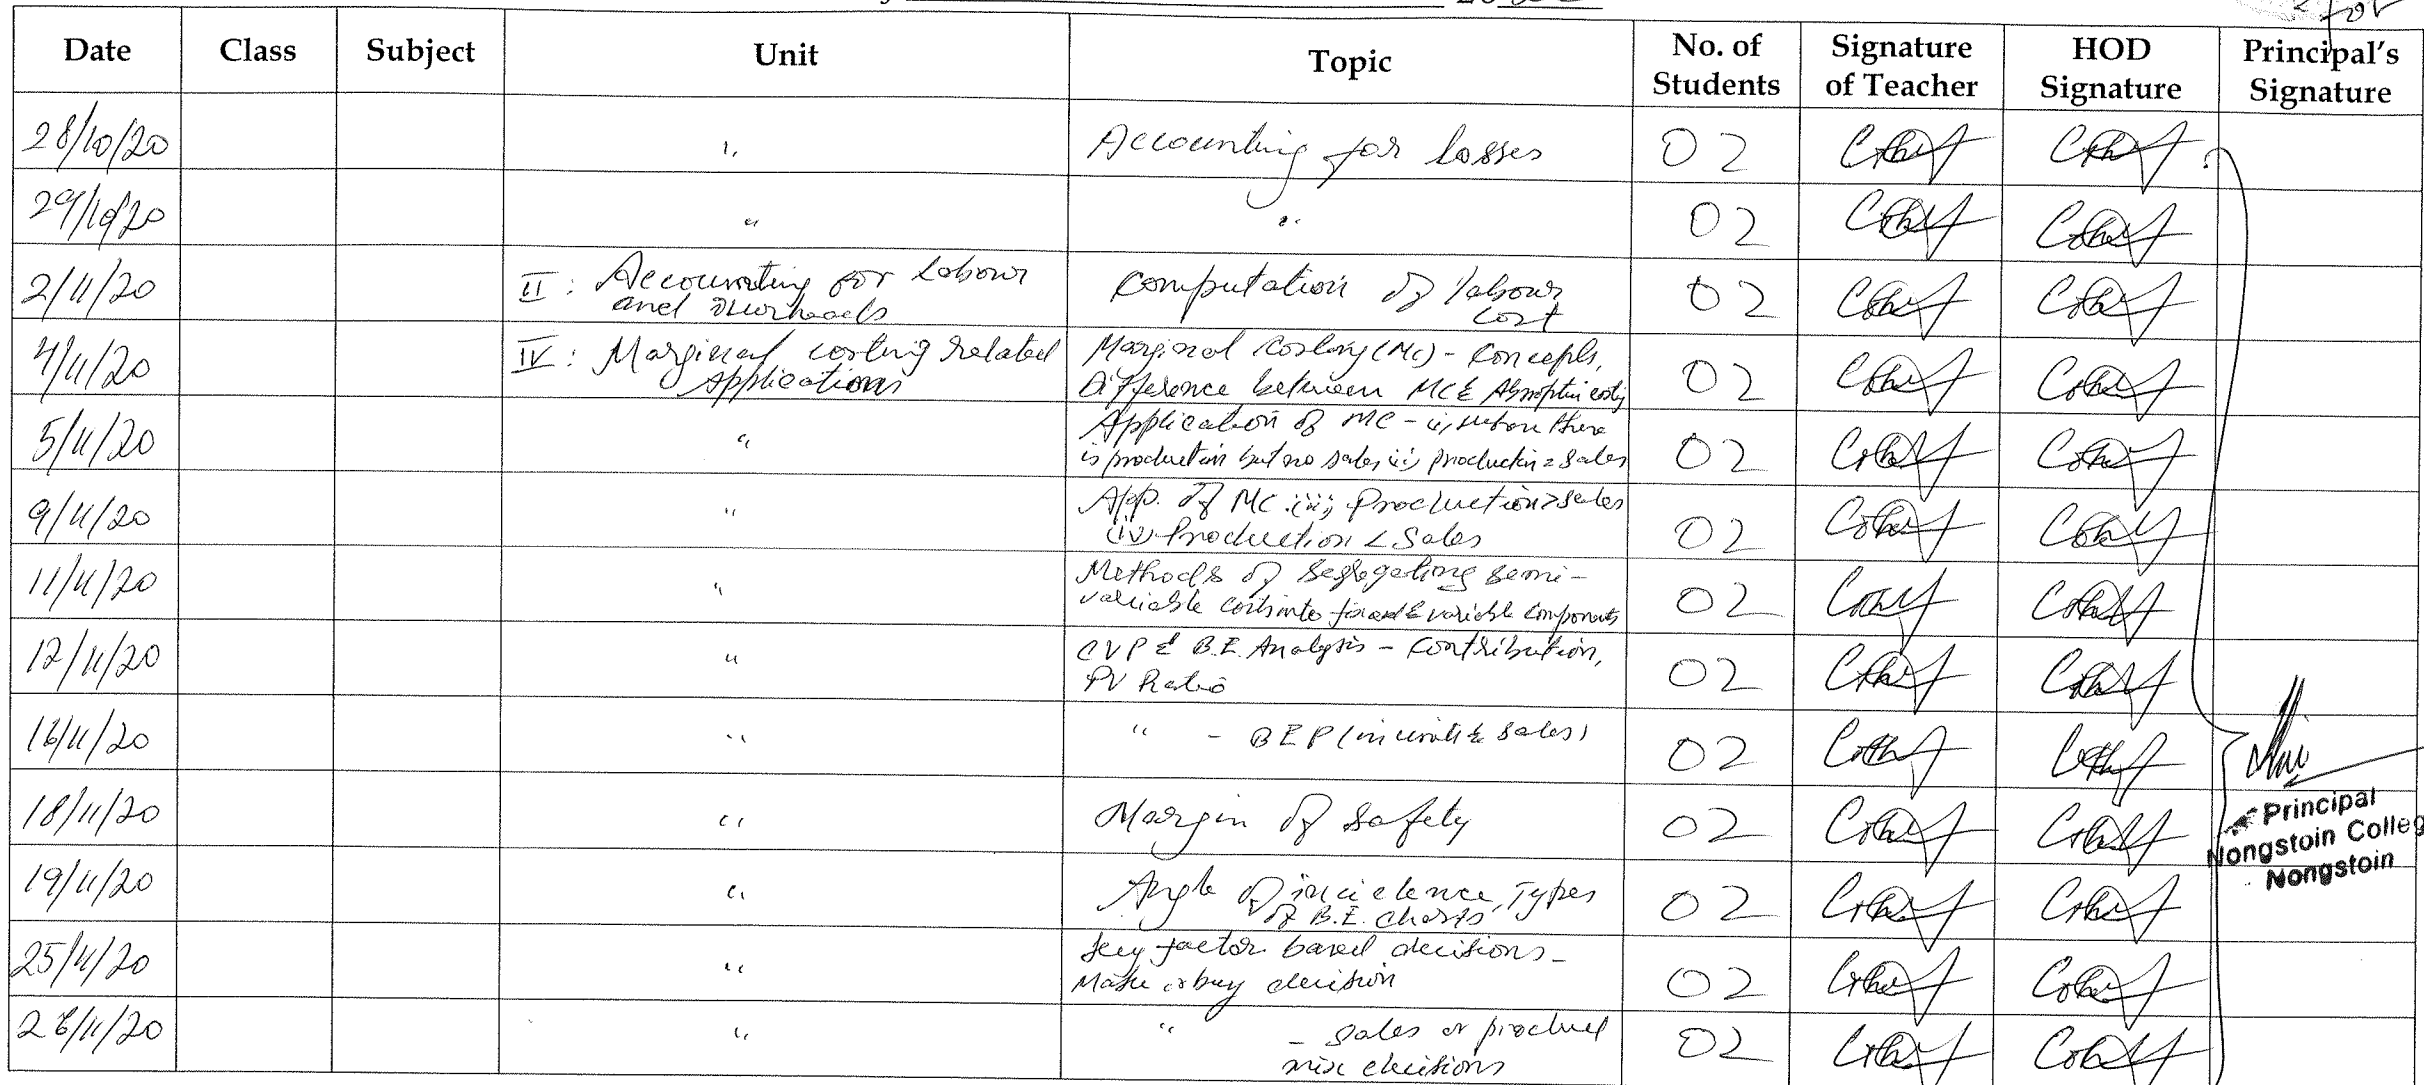 for
Date Class Subject Unit Topic No. of Students Signature of Teacher HOD Signature Principal's Signature
28/10/20 " Accounting for losses 02
29/10/20 " " 02
2/11/20 II : Accounting for Labour and overheads Computation of labour cost 02
4/11/20 IV : Marginal costing related applications Marginal Costing (MC) - Concepts, Difference between MC & Absorption costing 02
5/11/20 " Application of MC - i, when there is production but no sales ii) production = sales 02
9/11/20 " App. of MC (iii) Production > sales (iv) Production < Sales 02
11/11/20 " Methods of segregating semi-variable costs into fixed & variable components 02
12/11/20 " CVP & B.E. Analysis - Contribution, PV Ratio 02
16/11/20 " " - BEP (in units & sales) 02
18/11/20 " Margin of safety 02
19/11/20 " Angle of incidence, Types of B.E. charts 02
25/11/20 " Key factor based decisions - Make or buy decision 02
26/11/20 " " - sales or product mix decisions 02
Principal
Nongstoin Colleg
Nongstoin